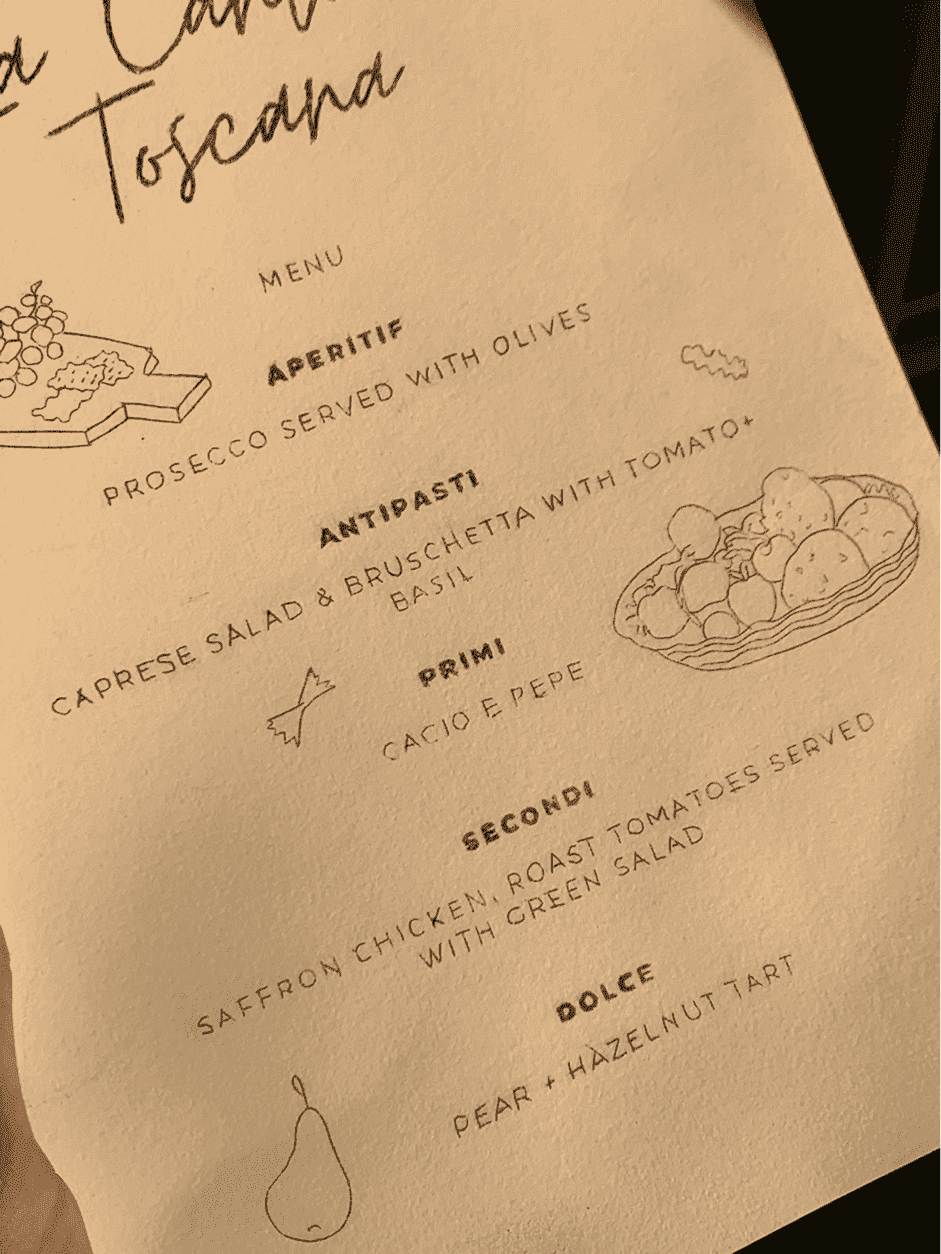 Toscana
MENU
APERITIF
PROSECCO SERVED WITH OLIVES
ANTIPASTI
CAPRESE SALAD & BRUSCHETTA WITH TOMATO+
BASIL
PRIMI
CACIO E PEPE
SECONDI
SAFFRON CHICKEN, ROAST TOMATOES SERVED
WITH GREEN SALAD
DOLCE
PEAR + HAZELNUT TART